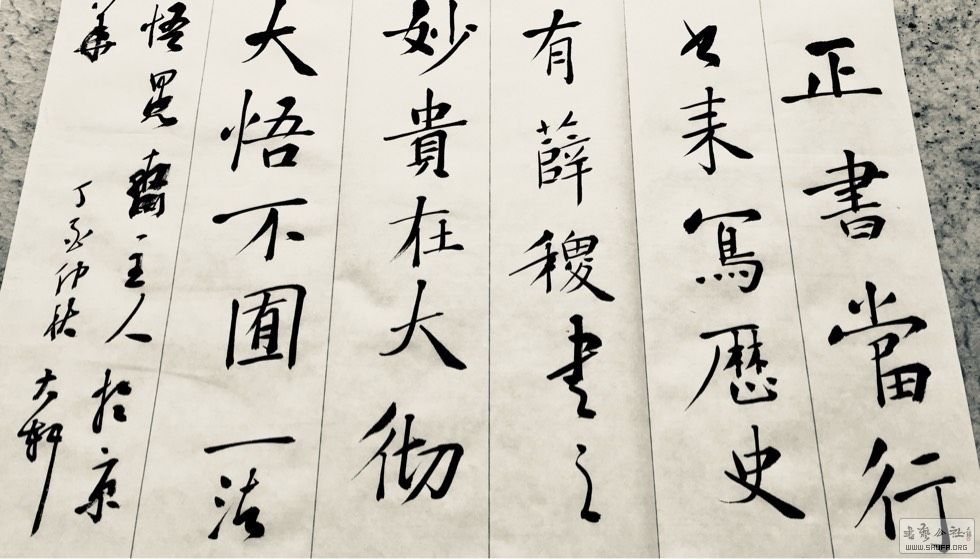 正書當行
书来寫歷史
有薛稷書之
妙貴在大彻
大悟不囿一法
悟齋主人於京
華 丁酉仲秋 大軒
WWW.SHUFA.ORG